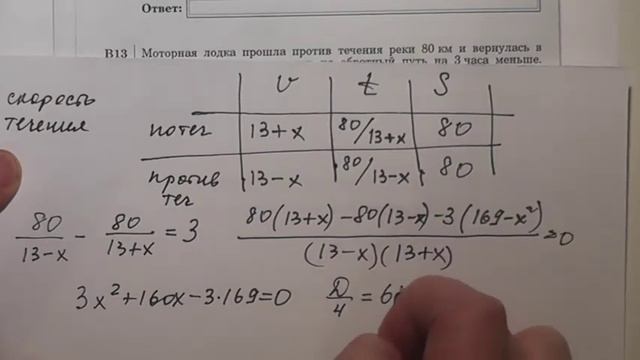 Ответ:
В13 Моторная лодка прошла против течения реки 80 км и вернулась в
обратный путь на 3 часа меньше.
скорость течения
v t S
по теч 13+x 80/13+x 80
против теч 13-x 80/13-x 80
80/(13-x) - 80/(13+x) = 3
(80(13+x) - 80(13-x) - 3(169-x²))/((13-x)(13+x)) = 0
3x²+160x-3·169=0 D/4 =